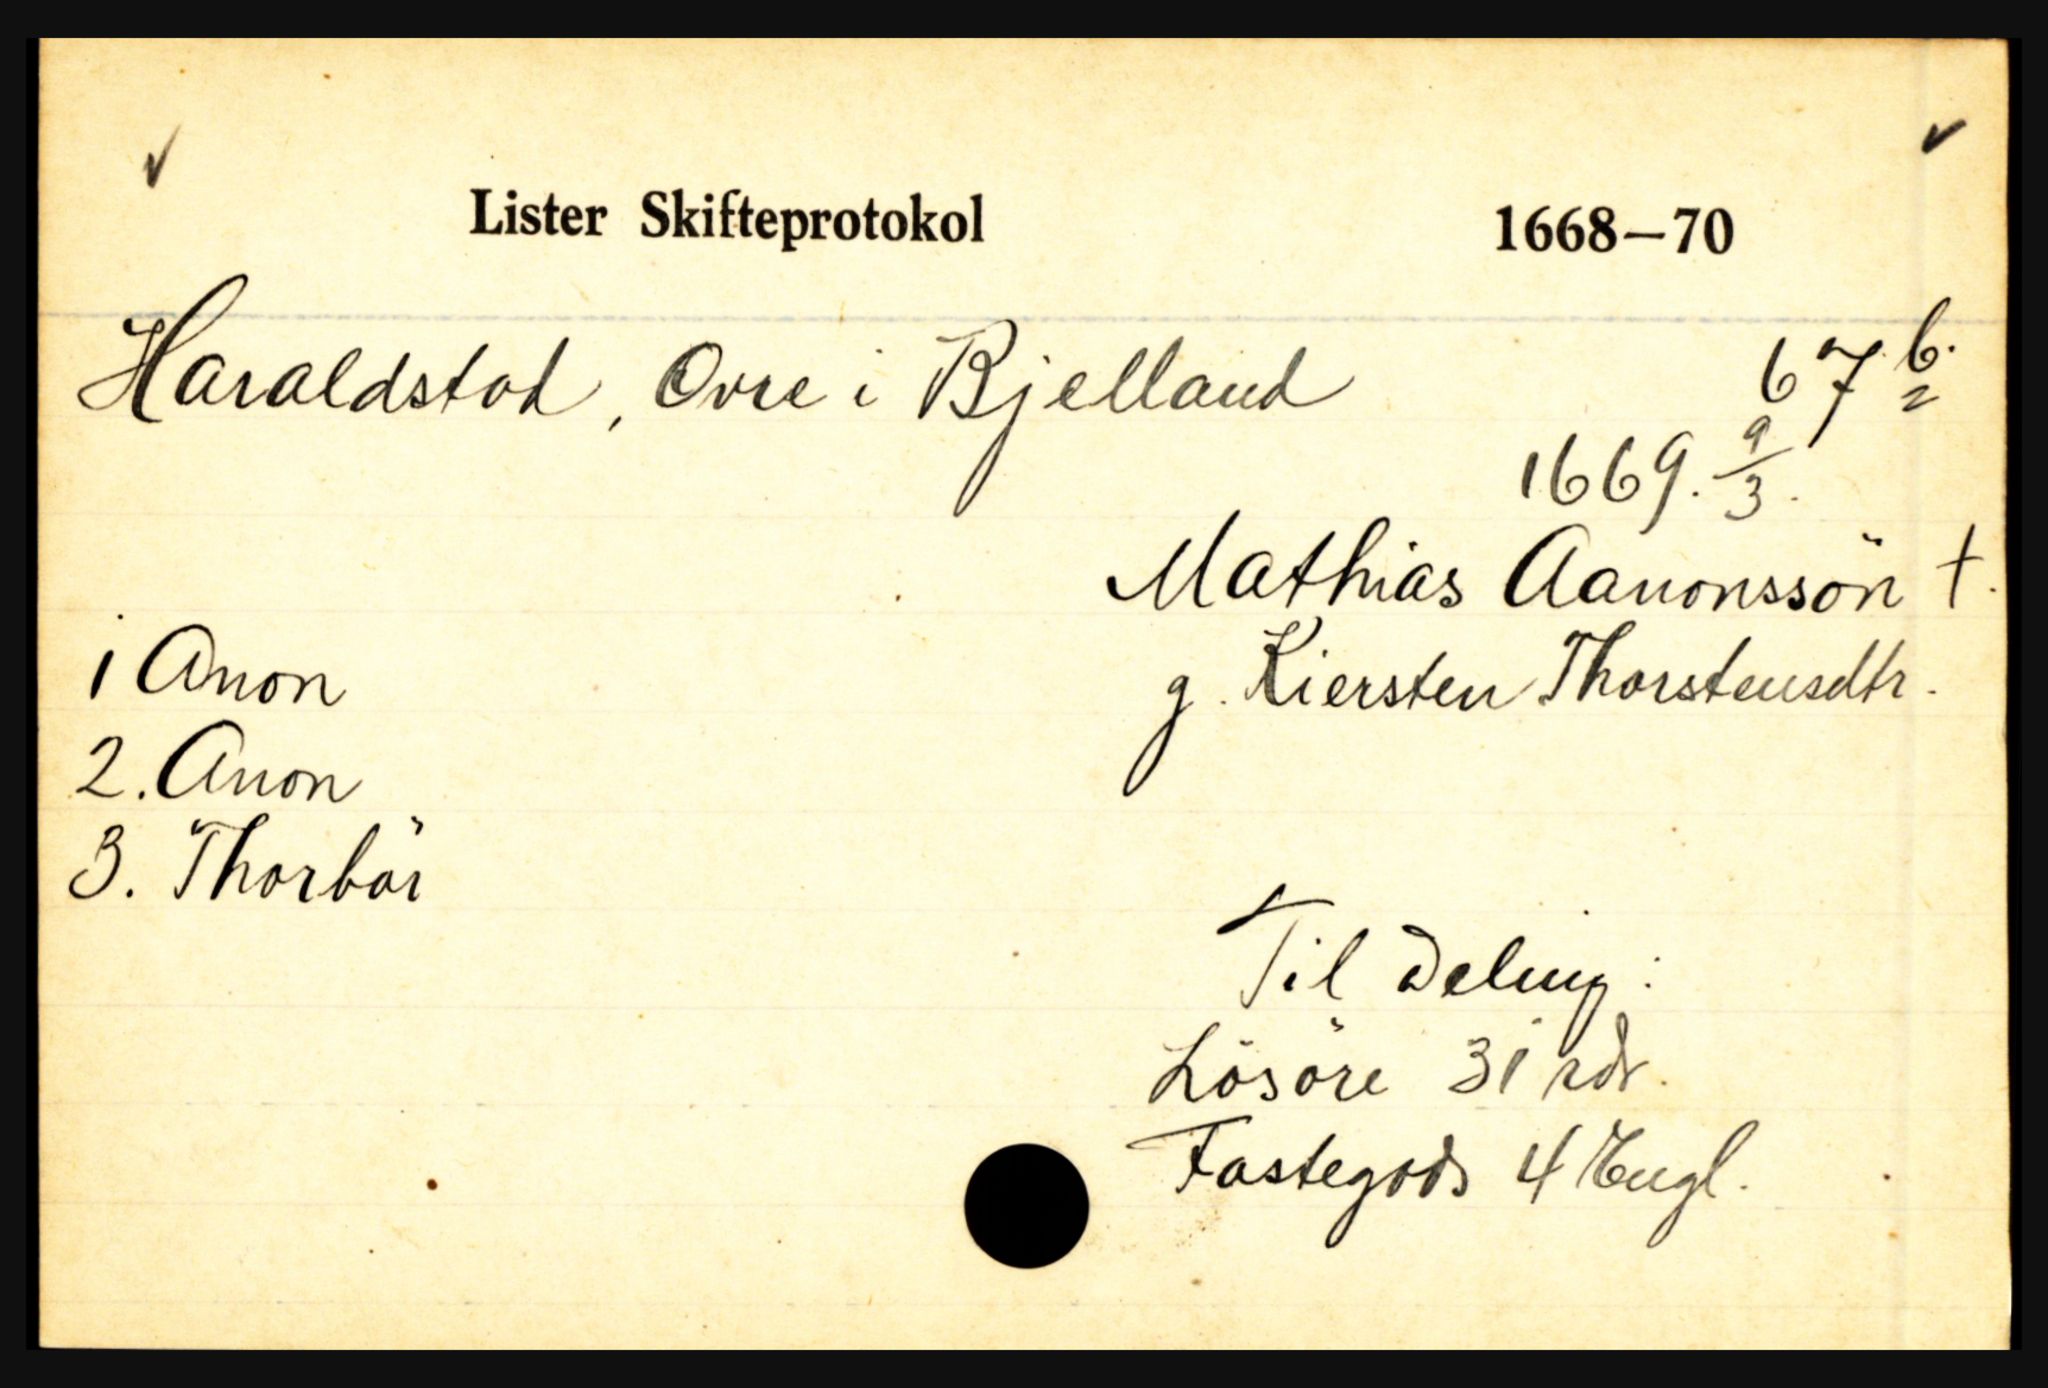 Lister Skifteprotokol 1668–70
Haraldstad, Ovre i Bjelland 67 b.
1669. 9/3.
Mathias Aanonssön †.
1 Anon g. Kiersten Thorstensdtr.
2. Anon
3. Thorbör
Til Deling:
Lösöre 31 rdr.
Fastegods 4 Engl.